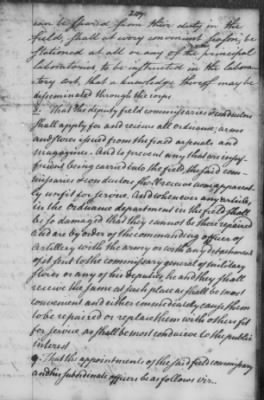 209
can be spared from their duty in the
field, shall at every convenient season, be
stationed at all or any of the principal
laboratories to be instructed in the labora-
tory art, that a knowledge thereof may be
disseminated through the corps.
That the deputy field commissaries & conductors
shall apply for and receive all ordnance, arms
and stores issued from the fixed arsenals and
magazines. And to prevent any that are insuf-
ficient being carried into the field, the said com-
missaries & conductors shall receive none apparent-
ly unfit for service. And whenever any articles,
in the ordnance department in the field shall
be so damaged that they cannot be there repaired
and are by order of the commanding officer of
Artillery with the army or with any detachment
of it sent to the commissary general of military
stores or any of his deputies, he and they shall
receive the same at such place as shall be most
convenient and either immediately cause them
to be repaired or replace them with others fit
for service as shall be most conducive to the public
interest.
9. That the appointments of the said field commissary
and his subordinate officers be as follows viz.